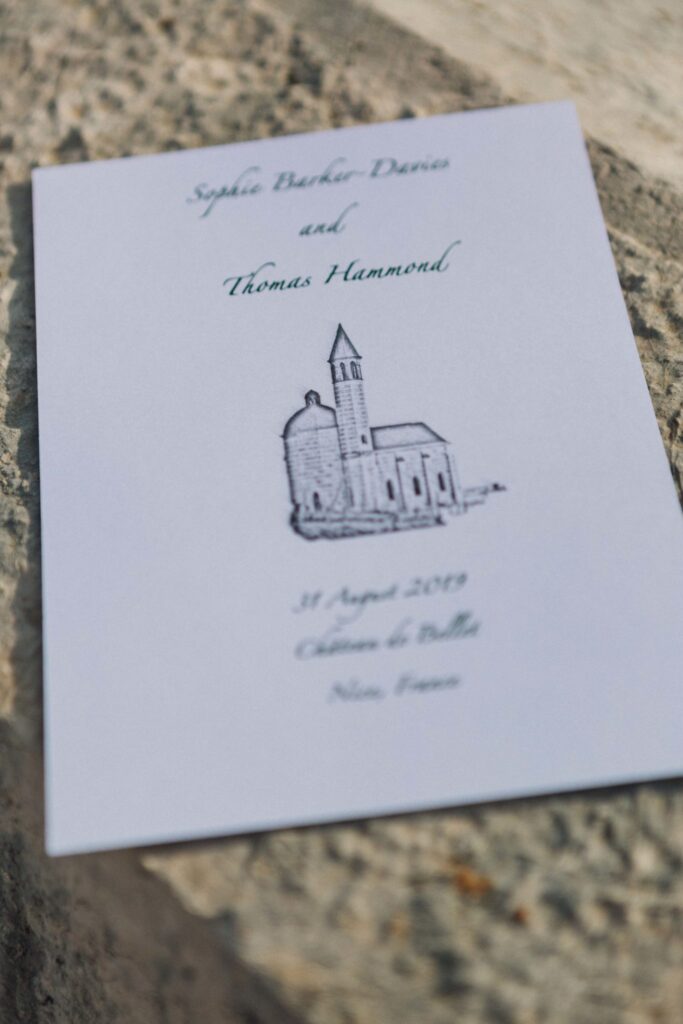 Sophie Barker-Davies
and
Thomas Hammond
31 August 2019
Château de Bellet
Nice, France